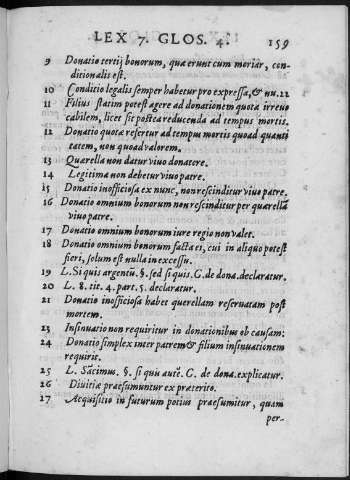 LEX 7. GLOS. 4. 159
9 Donatio tertij bonorum, quæ erunt cum moriár, con-
ditionalis est.
10 Conditio legalis semper habetur pro expressa, & nu. 22
11 Filius statim potest agere ad donationem quotæ irreuo
cabilem, licet sit postea reducenda ad tempus mortis.
12 Donatio quotæ refertur ad tempus mortis quoad quanti
tatem, non quoad valorem.
13 Quarella non datur viuo donatere.
14 Legitima non debetur viuo patre.
15 Donatio inofficiosa ex nunc, non rescinditur viuo patre.
16 Donatio omnium bonorum non rescinditur per quarellā
viuo patre.
17 Donatio omnium bonorum iure regio non valet.
18 Donatio omnium bonorum facta ei, cui in aliquo potest
fieri, solum est nulla in excessu.
19 L. Si quis argentū. §. sed si quis. C. de dona. declaratur.
20 L. 8. tit. 4. part. 5. declaratur.
21 Donatio inofficiosa habet querellam reseruatam post
mortem.
23 Insinuatio non requiritur in donationibus ob causam:
24 Donatio simplex inter patrem & filium insinuationem
requirit.
25 L. Sācimus. §. si quis autē. C. de dona. explicatur.
26 Diuitiæ præsumuntur ex præterito.
27 Acquisitio in futurum potius præsumitur, quam
per-